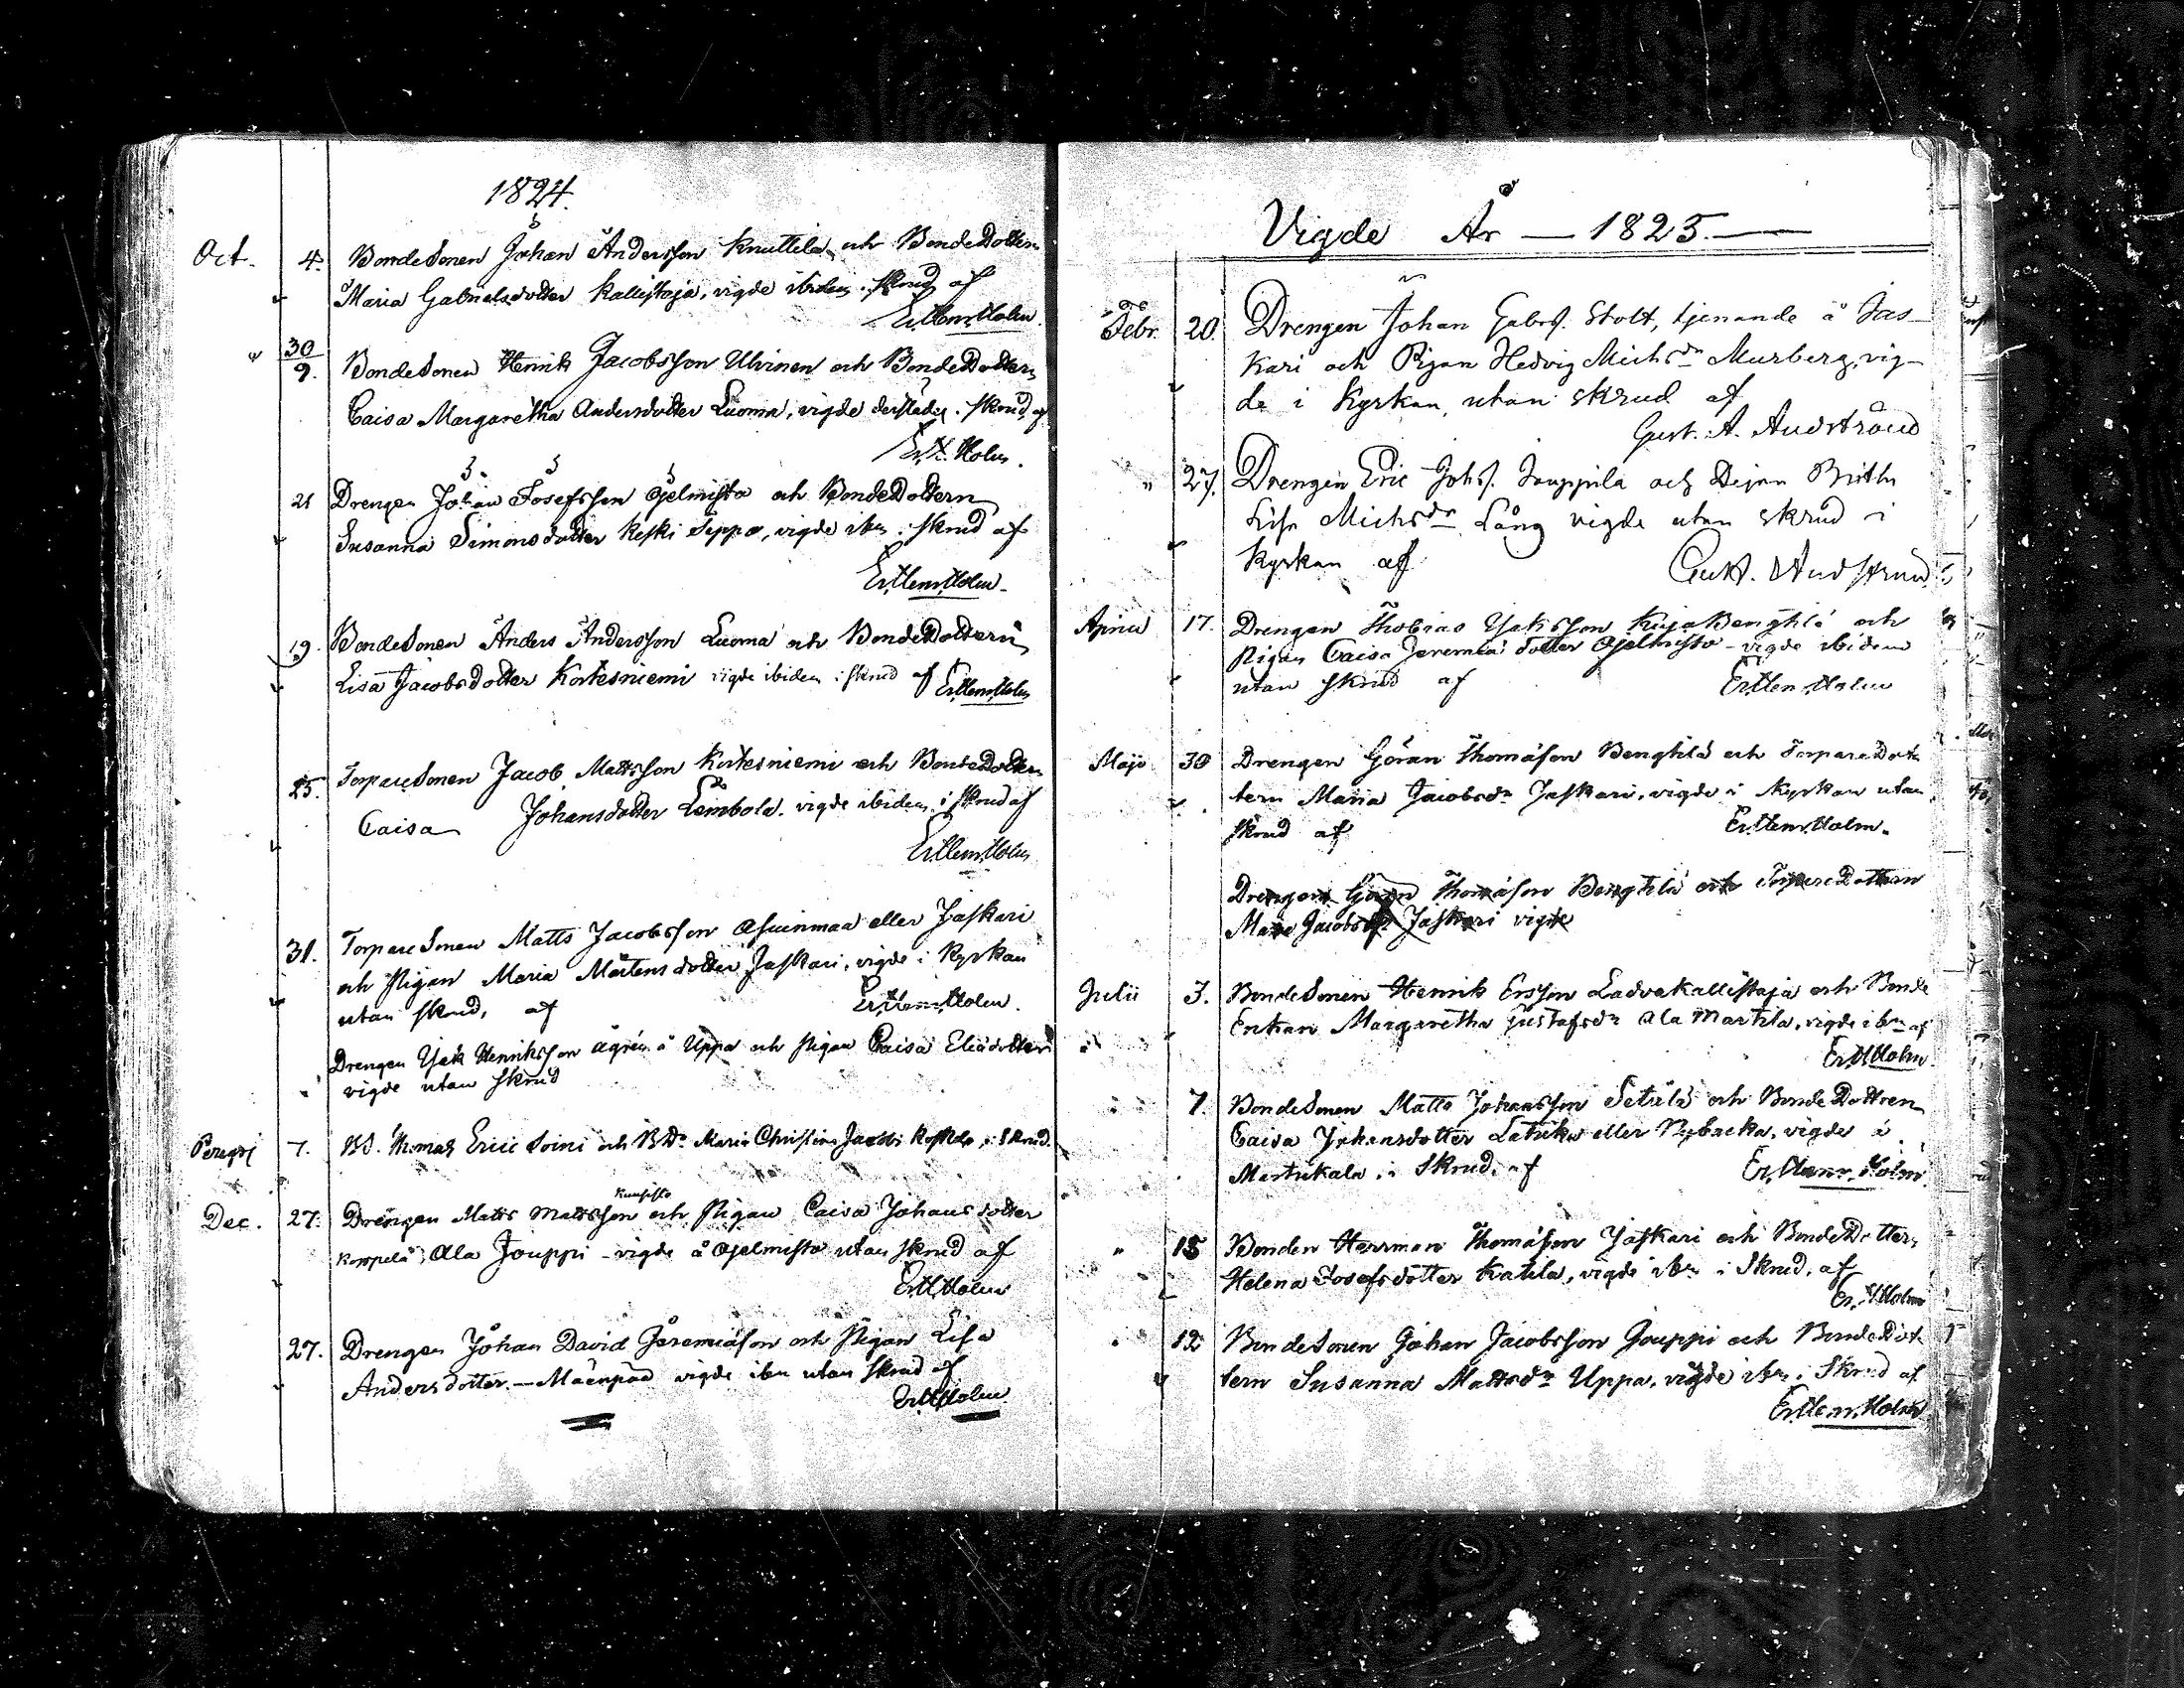 1824.
Oct. 4. BondeSonen Johan Andersson Knuttila och BondeDottern
Maria Gabrielsdotter Kallistaja, vigde ibidem i skrud af
Er. Henr. Holm
" 30
9. BondeSonen Henrik Jacobsson Ulvinen och BondeDottern
Caisa Margaretha Andersdotter Luoma, vigde derstädes i skrud af
Er. H. Holm.
21 Drengen Johan Josefsson Ojelmisto och BondeDottern
Susanna Simonsdotter Keski Seppo, vigde ibm i skrud af
Er. Henr. Holm
19. BondeSonen Anders Andersson Luoma och BondeDottern
Lisa Jacobsdotter Kortesniemi vigde ibidem i skrud af Er. Henr. Holm
25. TorpareSonen Jacob Mattsson Kortesniemi och BondeDottern
Caisa Johansdotter Lembola. vigde ibidem i skrud af
Er. Henr. Holm
31. TorpareSonen Matts Jacobsson Asuinmaa eller Jaskari
och Pigan Maria Mårtensdotter Jaskari, vigde i Kyrkan
utan skrud, af Er. Henr. Holm.
Drengen Isak Henriksson Ågren å Uppa och Pigan Caisa Eliædotter
vigde utan skrud
Peregri 7. BS. Thomas Erici Soini och BDr Maria Christina Jacobi Koskela, i skrud.
Kuusisto
Dec. 27. Drengen Matts Mattsson och Pigan Caisa Johansdotter
Koppelå, Ala Jouppi - vigde å Ojelmisto utan skrud af
Er. H. Holm
27. Drengen Johan David Jeremiæson och Pigan Lisa
Andersdotter - Mäenpää vigde ibm utan skrud af
Er. H. Holm
Vigde År — 1825. —
Febr. 20. Drengen Johan Gabrs. Stolt, tjenande å Jas-
kari och Pigan Hedvig Michsdr Murberg, vig-
de i Kyrkan, utan skrud af
Gust. A. Audström
" 27. Drengen Eric Johs. Jouppila och Pigan Brita
Lisa Michsdr Lång vigde utan skrud i
Kyrkan af Gust. Audström
Aprill 17. Drengen Thobias Isaksson Kujabengtilä och
Pigan Caisa Jeremiædotter Ojelmisto - vigde ibidem
utan skrud af Er. Henr. Holm
Maji 30 Drengen Göran Thomæson Bengtilä och TorpareDot-
tern Maria Jacobsdr Jaskari, vigde i Kyrkan utan
skrud af Er. Henr. Holm.
Drengen Göran Thomæson Bengtilä och TorpareDottern
Maria Jacobsdr Jaskari vigde
Julii 3. BondeSonen Henrik Ersson Ladvakallistaja och Bonde
Enkan Margaretha Gustafsdr Ala Martila, vigde ibm af
Er. H. Holm.
7. BondeSonen Matts Johansson Setälä och BondeDottren
Caisa Johansdotter Latukka eller Nybacka, vigde å
Martikala, i Skrud, af Er. Henr. Holm.
" 15 Bonden Herrman Thomæson Jaskari och BondeDottern
Helena Josefsdotter Katila, vigde ibm i Skrud, af
Er. H. Holm
" 12 BondeSonen Johan Jacobsson Jouppi och BondeDot-
tern Susanna Mattsdr Uppa, vigde ibm i Skrud af
Er. Henr. Holm